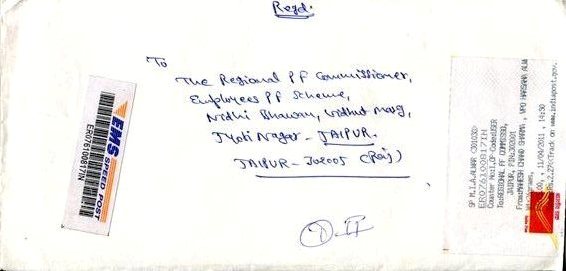 Regd.
To
The Regional PF Commissioner,
Employees PF Scheme,
Nidhi Bhawan, Vidhut marg,
Jyoti Nagar - JAIPUR.
JAIPUR - 302005 (Raj)
EMS SPEED POST
SP M.I.A.ALWAR (301030)
Counter No:1,OP-Code:USER
To:REGIONAL PF COMMISSO,
JAIPUR, PIN:302001
From:MAHESH CHAND SHARMA , VPO HARSANA ALW
11/04/2011 , 14:50
Track on www.indiapost.gov.